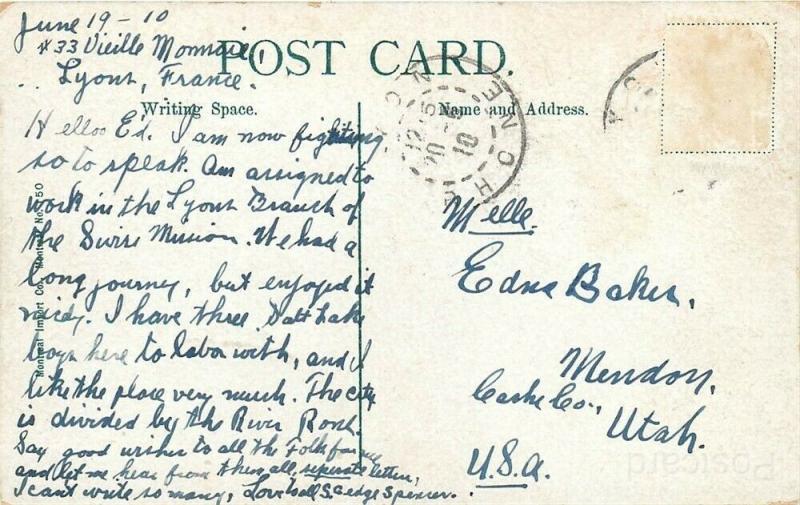 June 19-10
#33 Vieille Monnaie,
.. Lyons, France.
POST CARD.
Writing Space.
Name and Address.
Helloo Ed. I am now fighting,
so to speak. Am assigned to
work in the Lyons Branch of
the Swiss Mission. We had a
long journey, but enjoyed it
nicely. I have three Salt Lake
boys here to labor with, and I
like the place very much. The city
is divided by the River Rone.
Say good wishes to all the Folk for me
and let me hear from them all, seperate letters,
I can't write so many, Love to all
Spencer.
Melle.
Edna Baker,
Mendon,
Cache Co.,
Utah.
U.S.A.
Montreal Import Co., Montreal No. 150
RHONE
12-15
20 -6
10
Postcard